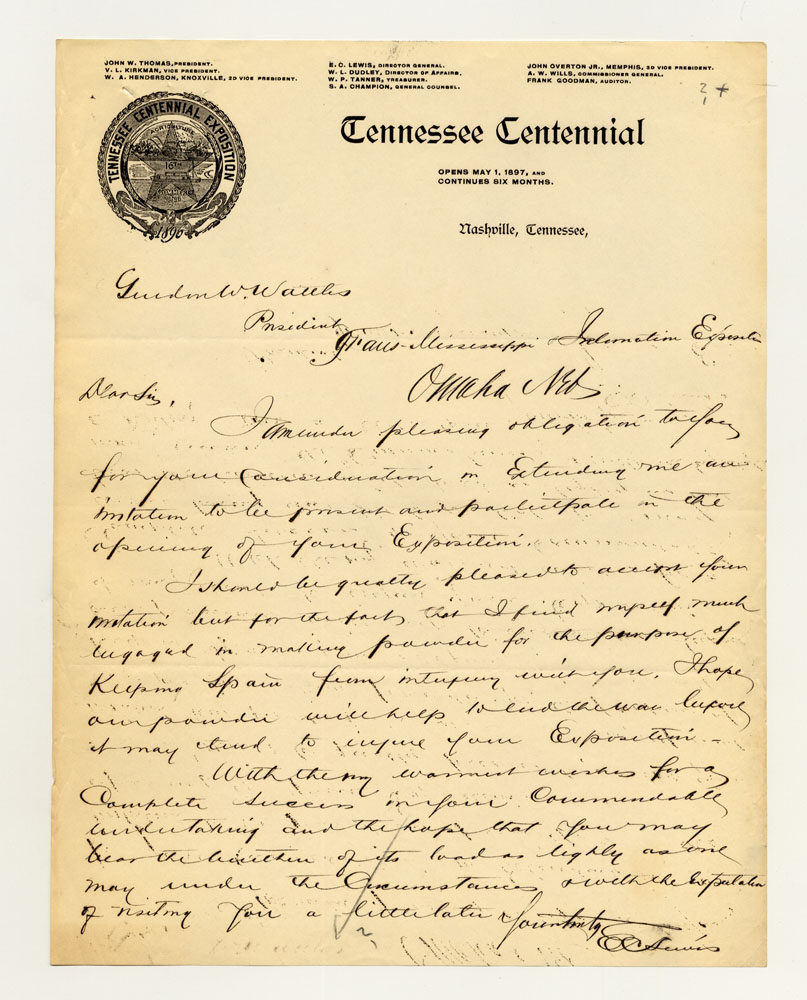 JOHN W. THOMAS, PRESIDENT.
V. L. KIRKMAN, VICE PRESIDENT.
W. A. HENDERSON, KNOXVILLE, 2D VICE PRESIDENT.
E. C. LEWIS, DIRECTOR GENERAL.
W. L. DUDLEY, DIRECTOR OF AFFAIRS.
W. P. TANNER, TREASURER.
S. A. CHAMPION, GENERAL COUNSEL.
JOHN OVERTON JR., MEMPHIS, 3D VICE PRESIDENT.
A. W. WILLS, COMMISSIONER GENERAL.
FRANK GOODMAN, AUDITOR.
? +
TENNESSEE CENTENNIAL EXPOSITION
AGRICULTURE
16TH
COMMERCE
1796
1896
Tennessee Centennial
OPENS MAY 1, 1897, AND
CONTINUES SIX MONTHS.
Nashville, Tennessee,
Gurdon W. Wattles
President
Trans-Mississippi & Expositi
Omaha Neb
Dear Sir,
I am under pleasing obligation to you
for your consideration in extending me an
invitation to be present and participate in the
opening of your Exposition.
I should be greatly pleased to accept your
invitation but for the fact that I find myself much
engaged in making powder for the purpose of
keeping Spain from interfering with you. I hope
our powder will help to end the war before
it may tend to injure your Exposition -
With the very warmest wishes for a
complete success in your commendable
undertaking and the hope that you may
bear the burthen of its load as lightly as one
may under the circumstances, & with the expectation
of visiting you a little later Yours truly
E C Lewis
?